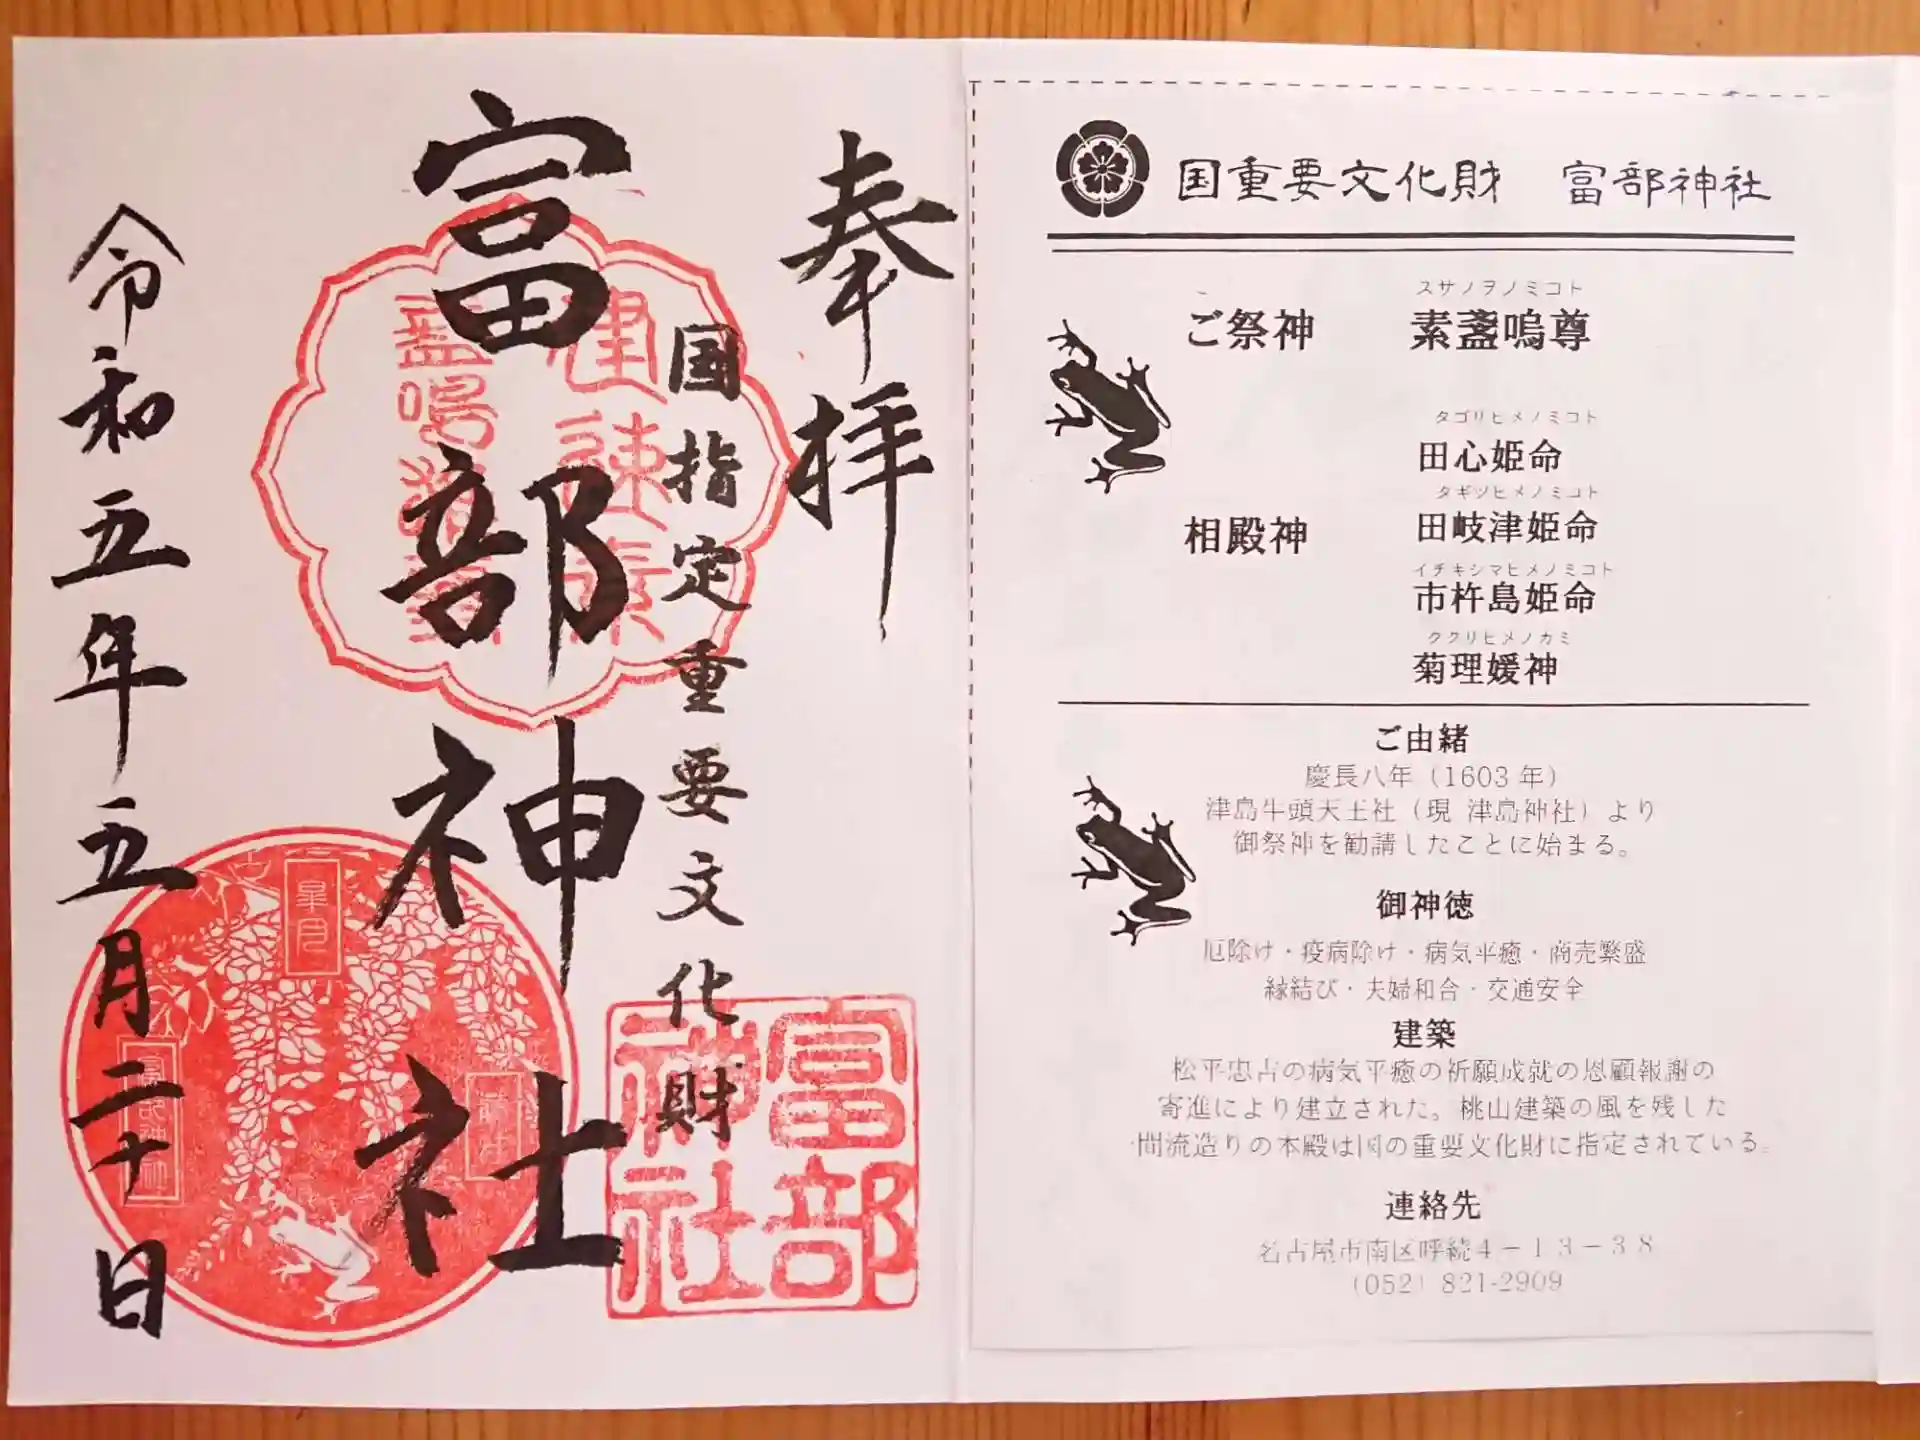 奉拝
国指定重要文化財
富部神社
令和五年五月二十日
建速素
盞嗚尊
皐月
富部神社
富部
神社
国重要文化財 富部神社
スサノヲノミコト
ご祭神 素盞嗚尊
タゴリヒメノミコト
田心姫命
タギツヒメノミコト
相殿神 田岐津姫命
イチキシマヒメノミコト
市杵島姫命
ククリヒメノカミ
菊理媛神
ご由緒
慶長八年（1603 年）
津島牛頭天王社（現 津島神社）より
御祭神を勧請したことに始まる。
御神徳
厄除け・疫病除け・病気平癒・商売繁盛
縁結び・夫婦和合・交通安全
建築
松平忠吉の病気平癒の祈願成就の恩顧報謝の
寄進により建立された。桃山建築の風を残した
間流造りの本殿は国の重要文化財に指定されている。
連絡先
名古屋市南区呼続４－１３－３８
（052）821-2909